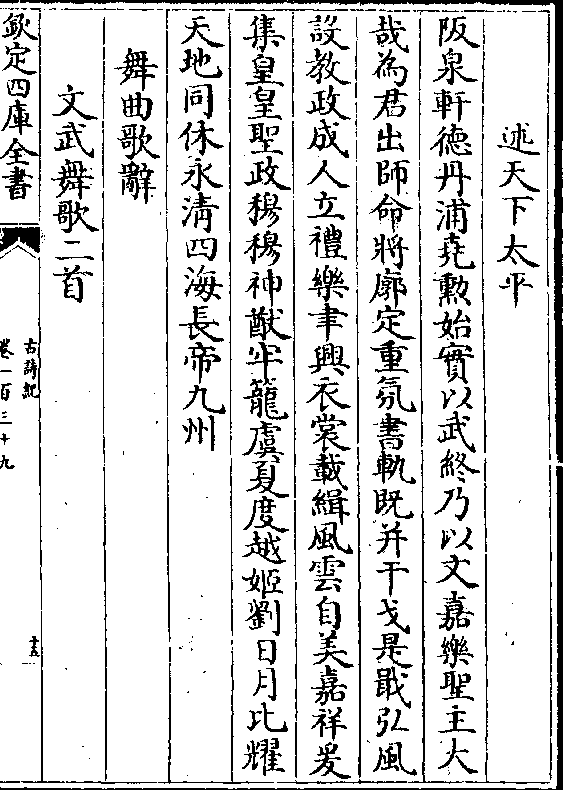 述天下太平
阪泉軒德丹浦堯勲始實以武終乃以文嘉樂聖主大
哉為君出師命將廓定重氛書軌既并干戈是戢弘風
設教政成人立禮樂聿興衣裳載緝風雲自美嘉祥爰
集皇皇聖政穆穆神猷牢籠虞夏度越姬劉日月比耀
天地同休永清四海長帝九州
舞曲歌辭
文武舞歌二首
欽定四庫全書
古詩紀
卷一百三十九